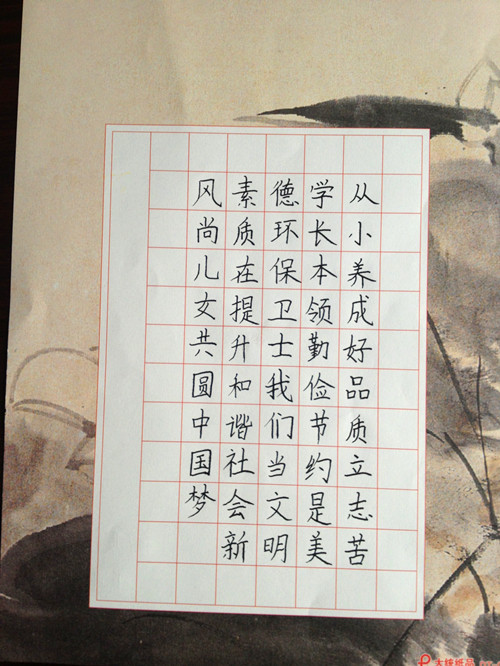 从小养成好品质立志苦
学长本领勤俭节约是美
德环保卫士我们当文明
素质在提升和谐社会新
风尚儿女共圆中国梦